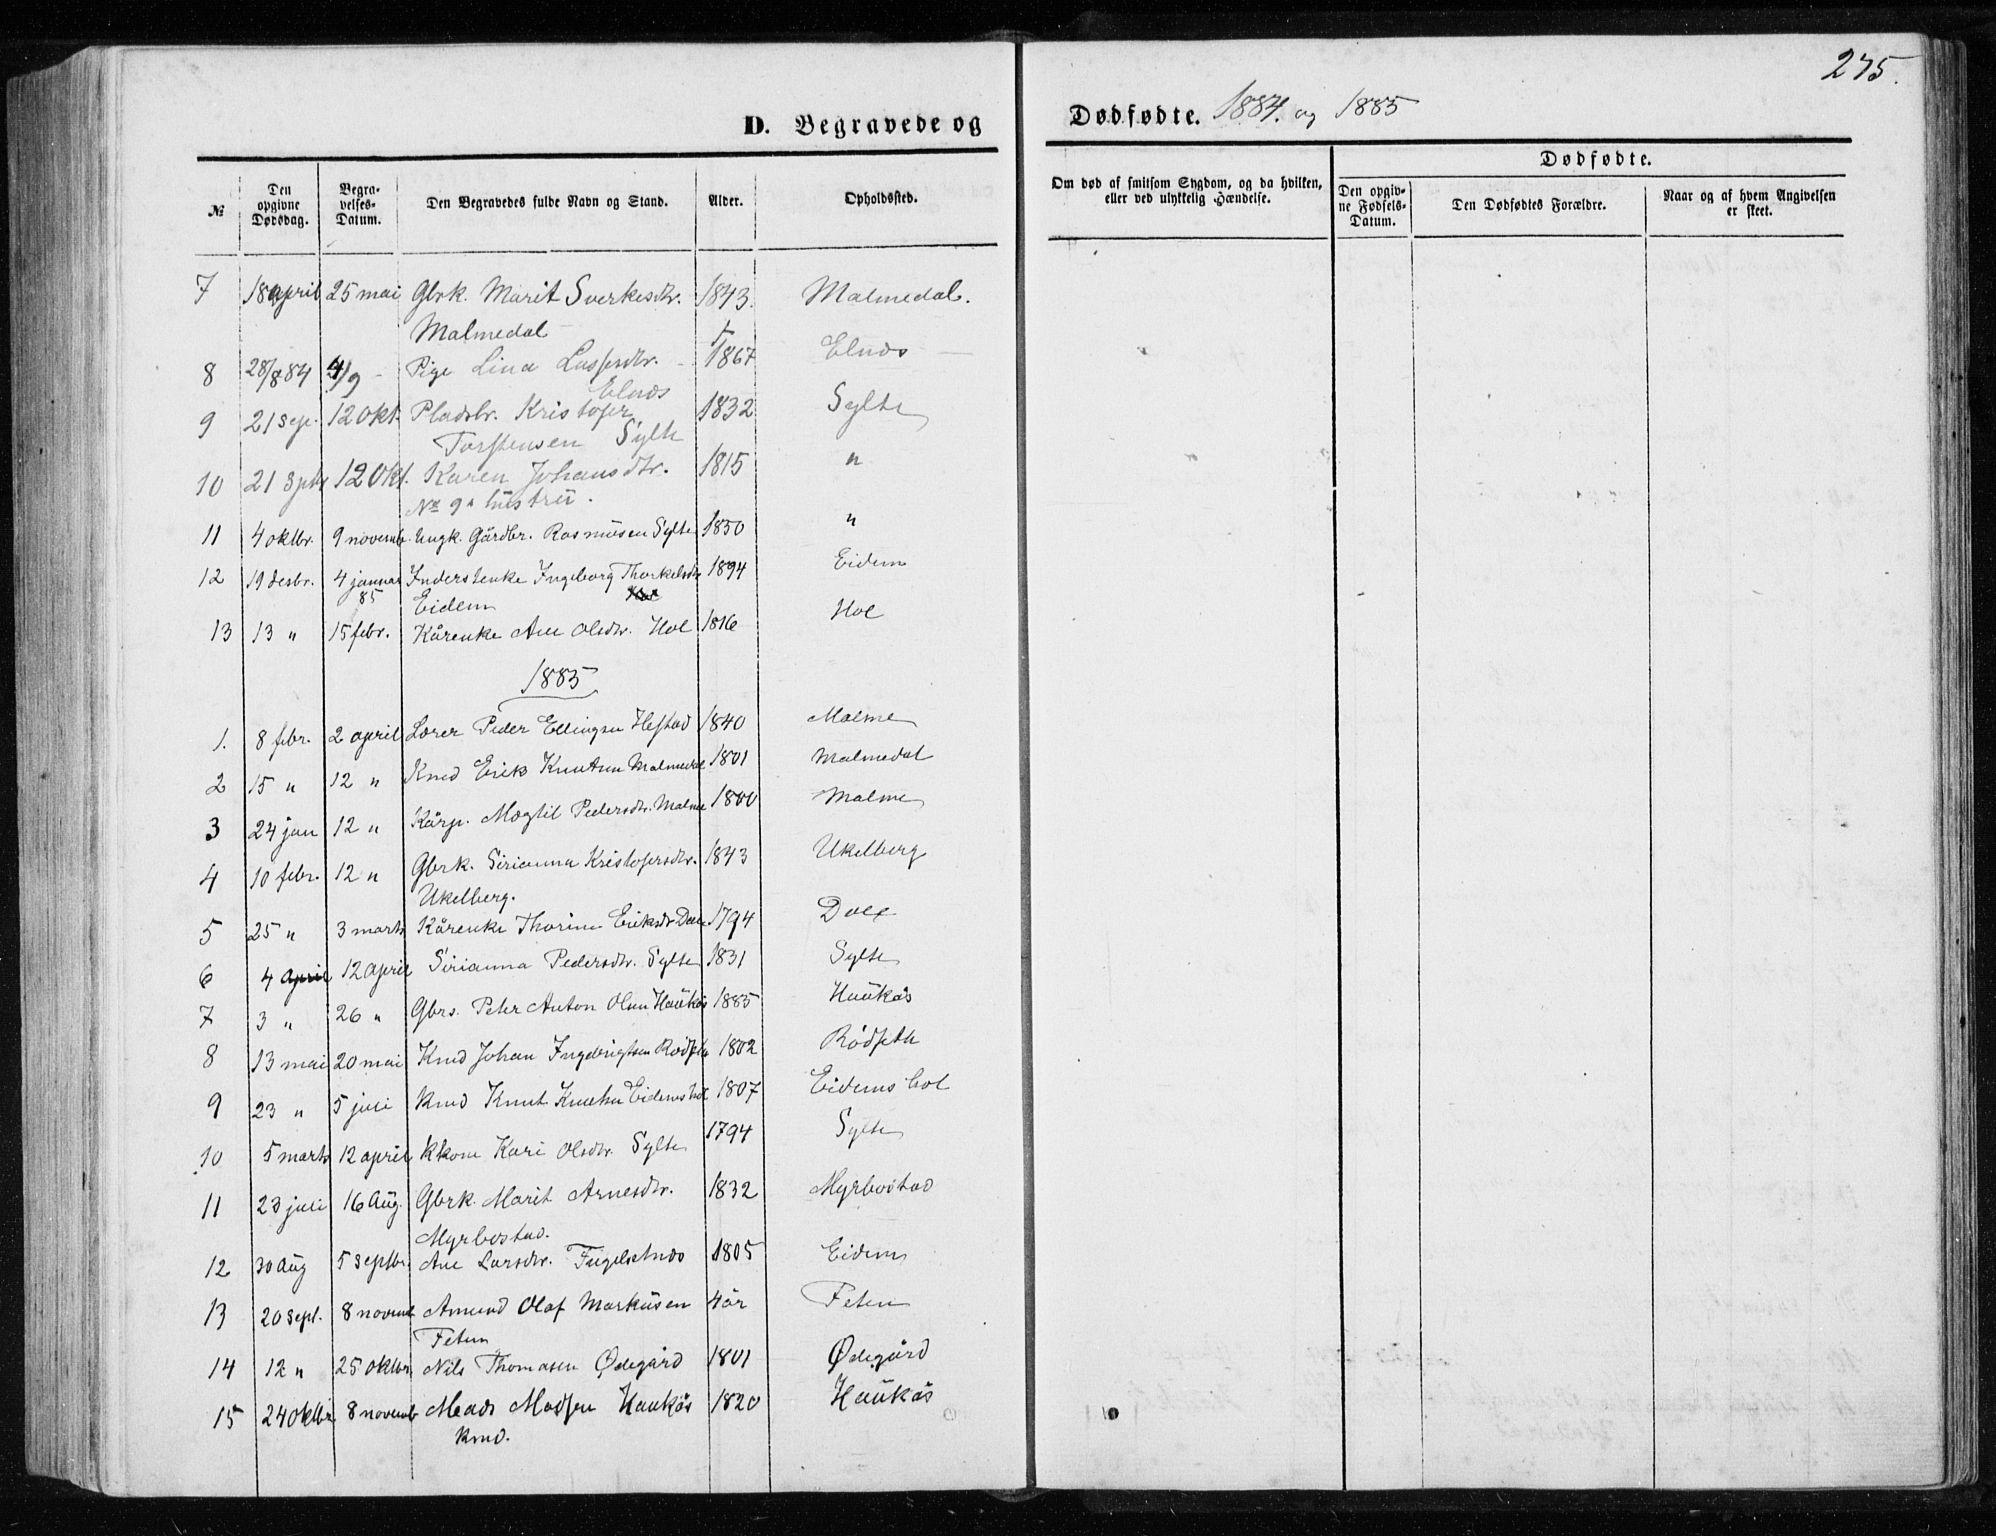 275.
D. Begravede og Dødfødte. 1884. og 1885
№ Den opgivne Dødsdag. Begravelses-Datum. Den Begravedes fulde Navn og Stand. Alder. Opholdssted. Om død af smitsom Sygdom, og da hvilken, eller ved ulykkelig Hændelse. Dødfødte. Den opgivne Fødsels-Datum. Den Dødfødtes Forældre. Naar og af hvem Angivelsen er skeet.
7 18 april 25 mai Gbrk. Marit Sverkesdtr. 1843. Malmedal.
Malmedal
8 28/8 84 4/9 - Pige Lina Lassesdtr. - 1867 Elnæs
Elnæs
9 21 sep. 12 okt. Pladsbr. Kristofer 1832 Sylte
Torstensen Sylte
10 21 sptr 12 Okt. Karen Johansdtr. 1815 "
No 9s hustru.
11 4 oktbr. 9 novemb. Ungk. Gårdbr. Rasmusen Sylte 1850 "
12 19 desbr. 4 januar Inderstenke Ingeborg Thorkelsdtr 1894 Eidem
85 Eidem
13 13 " 15 febr. Kårenke Ane Olsdtr. Hol 1816 Hol
1885
1. 8 febr. 2 april Lærer Peder Ellingsen Hestad 1840 Malme
2 15 " 12 " Kmd Erik Knutsen Malmedal 1801 Malmedal
3 24 jan 12 " Kårp. Magtil Pedersdtr. Malme 1800 Malme
4 10 febr. 12 " Gbrk. Sirianna Kristofersdtr. 1843 Ukelberg
Ukelberg.
5 25 " 3 marts Kårenke Thorine Eriksdtr Dale 1794 Dale
6 4 april 12 april Sirianna Pedersdtr. Sylte 1831 Sylte
7 3 " 26 " Gbrs. Peter Anton Olsen Haukås 1885 Haukås
8 13 mai 20 mai Kmd Johan Ingebrigtsen Rødseth 1802 Rødseth
9 23 " 5 juli Kmd Knut Knutsen Eidemshol 1807 Eidemshol
10 5 marts 12 april Kkone Kari Olsdtr. Sylte 1794 Sylte
11 23 juli 16 Aug. Gbrk. Marit Arnesdtr. 1832 Myrbostad
Myrbostad.
12 30 Aug 5 septbr. Ane Larsdtr. Fugelsetnæs 1805 Eidem
13 20 sept. 8 novemb Amund Olaf Markusen 4 år Feten
Feten
14 12 " 25 oktbr. Nils Thomasen Ødegård 1801 Ødegård
15 24 oktbr 8 novemb Mads Madsen Haukås 1820 Haukås
kmd.